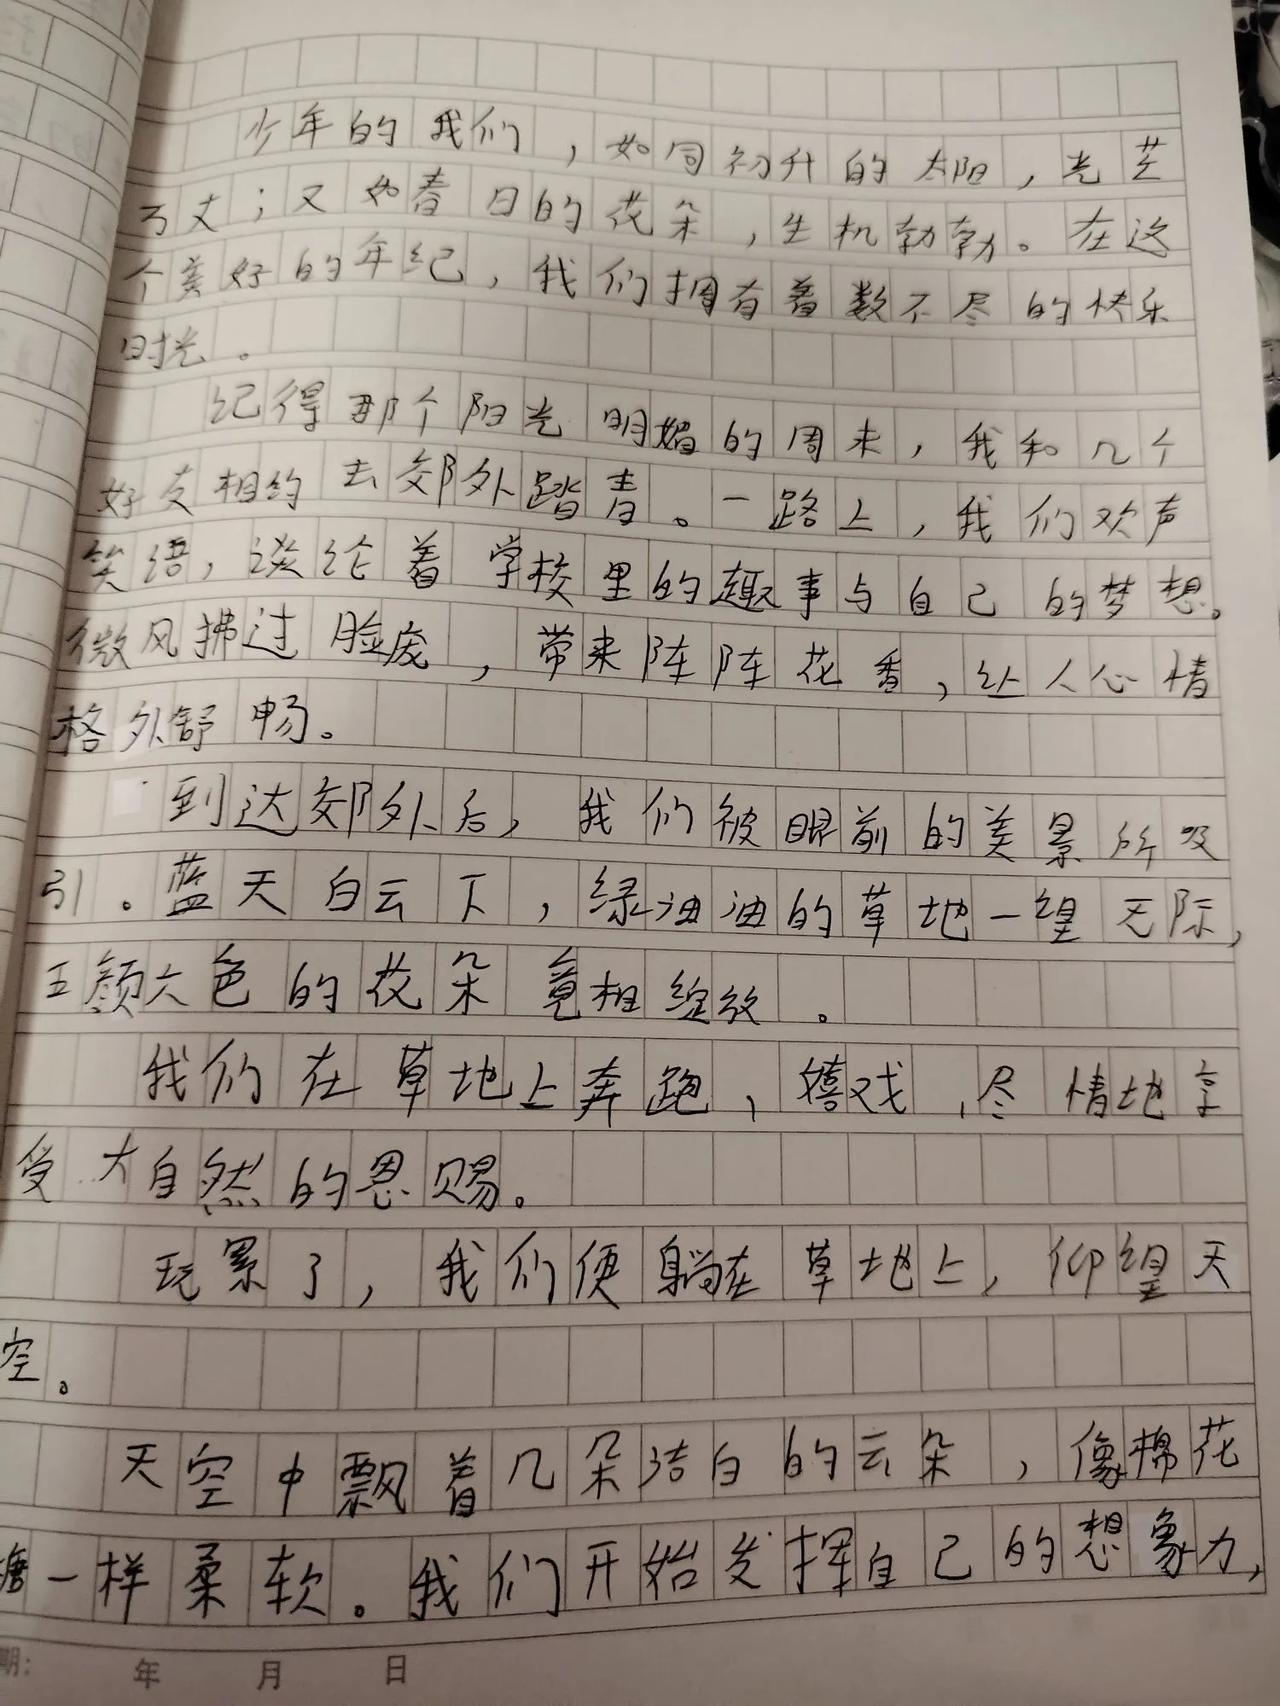 少年的我们，如同初升的太阳，光芒
万丈；又如春日的花朵，生机勃勃。在这
个美好的年纪，我们拥有着数不尽的快乐
时光。
记得那个阳光明媚的周末，我和几个
好友相约去郊外踏青。一路上，我们欢声
笑语，谈论着学校里的趣事与自己的梦想。
微风拂过脸庞，带来阵阵花香，让人心情
格外舒畅。
到达郊外后，我们被眼前的美景所吸
引。蓝天白云下，绿油油的草地一望无际，
五颜六色的花朵竟相绽放。
我们在草地上奔跑，嬉戏，尽情地享
受大自然的恩赐。
玩累了，我们便躺在草地上，仰望天
空。
天空中飘着几朵洁白的云朵，像棉花
糖一样柔软。我们开始发挥自己的想象力，
期：　年　月　日